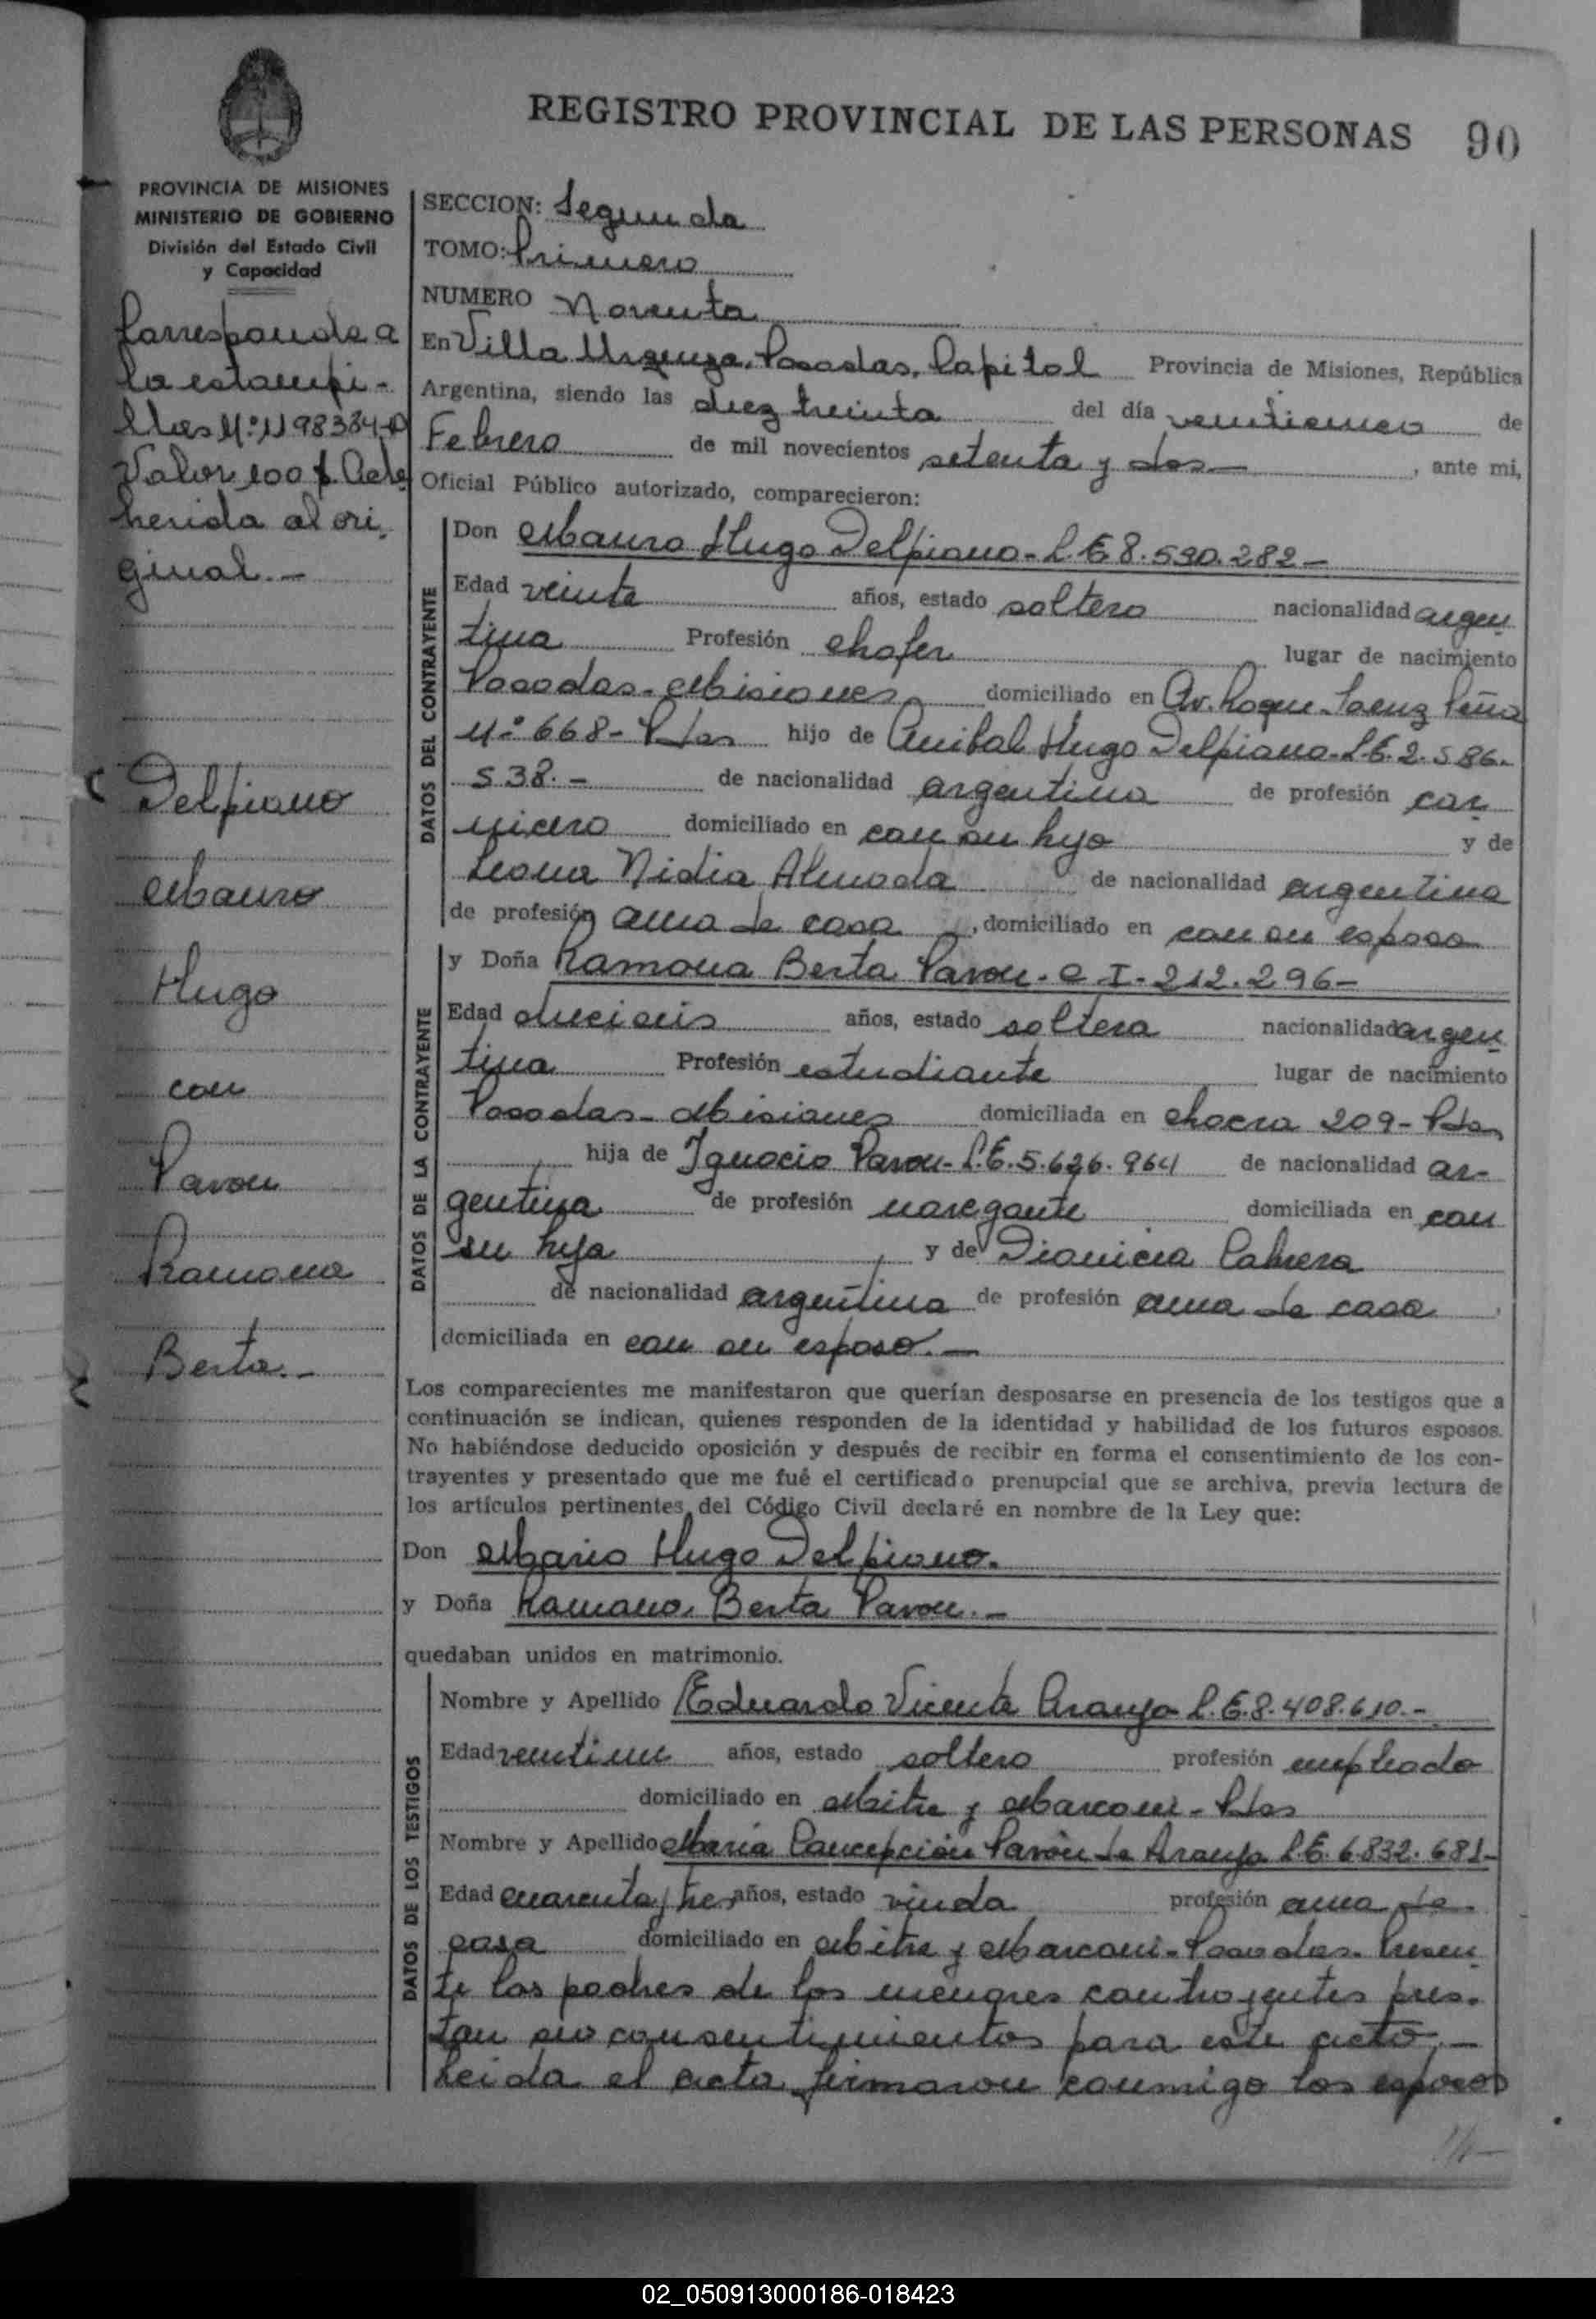 REGISTRO PROVINCIAL DE LAS PERSONAS 90
PROVINCIA DE MISIONES
MINISTERIO DE GOBIERNO
División del Estado Civil
y Capacidad
Corresponde a
la estampi-
llas Nº 1198384-D
Valor 100 $. Adhe
herida al ori
ginal.-
Delpiano
Mauro
Hugo
con
Pavon
Ramona
Berta.-
SECCION: Segunda
TOMO: Primero
NUMERO Noventa
En Villa Urquiza, Posadas, Capital Provincia de Misiones, República
Argentina, siendo las diez treinta del día veinticinco de
Febrero de mil novecientos setenta y dos- , ante mi,
Oficial Público autorizado, comparecieron:
DATOS DEL CONTRAYENTE
Don Mauro Hugo Delpiano- L.E 8.590.282-
Edad veinte años, estado soltero nacionalidad argen
tina Profesión chofer lugar de nacimiento
Posadas-Misiones domiciliado en Av. Roque Saenz Peña
Nº 668- Pdas hijo de Anibal Hugo Delpiano- L.E. 2.586.
538.- de nacionalidad argentina de profesión car
nicero domiciliado en con su hijo y de
Leona Nidia Almada de nacionalidad argentina
de profesión ama de casa , domiciliado en con su esposo
DATOS DE LA CONTRAYENTE
y Doña Ramona Berta Pavon- C I- 212.296-
Edad dieciseis años, estado soltera nacionalidad argen
tina Profesión estudiante lugar de nacimiento
Posadas-Misiones domiciliada en chacra 209- Pdas
hija de Ignacio Pavon- L.E. 5.626.964 de nacionalidad ar-
gentina de profesión navegante domiciliada en con
su hija y de Dionicia Cabrera
de nacionalidad argentina de profesión ama de casa
domiciliada en con su esposo.-
Los comparecientes me manifestaron que querían desposarse en presencia de los testigos que a
continuación se indican, quienes responden de la identidad y habilidad de los futuros esposos.
No habiéndose deducido oposición y después de recibir en forma el consentimiento de los con-
trayentes y presentado que me fué el certificado prenupcial que se archiva, previa lectura de
los artículos pertinentes del Código Civil declaré en nombre de la Ley que:
Don Mario Hugo Delpiano.
y Doña Ramona Berta Pavon.-
quedaban unidos en matrimonio.
DATOS DE LOS TESTIGOS
Nombre y Apellido Eduardo Vicente Araujo L.E. 8.408.610.-
Edad veintiun años, estado soltero profesión empleado
domiciliado en Mitre y Marconi- Pdas
Nombre y Apellido Maria Concepción Pavón de Araujo L.E. 6.832.681-
Edad cuarenta y tres años, estado viuda profesión ama de
casa domiciliado en Mitre y Marconi- Posadas. Presen
te los padres de los menores contrayentes pres-
tan sus consentimientos para este acto.-
Leida el acta firmaron conmigo los esposos
02_050913000186-018423